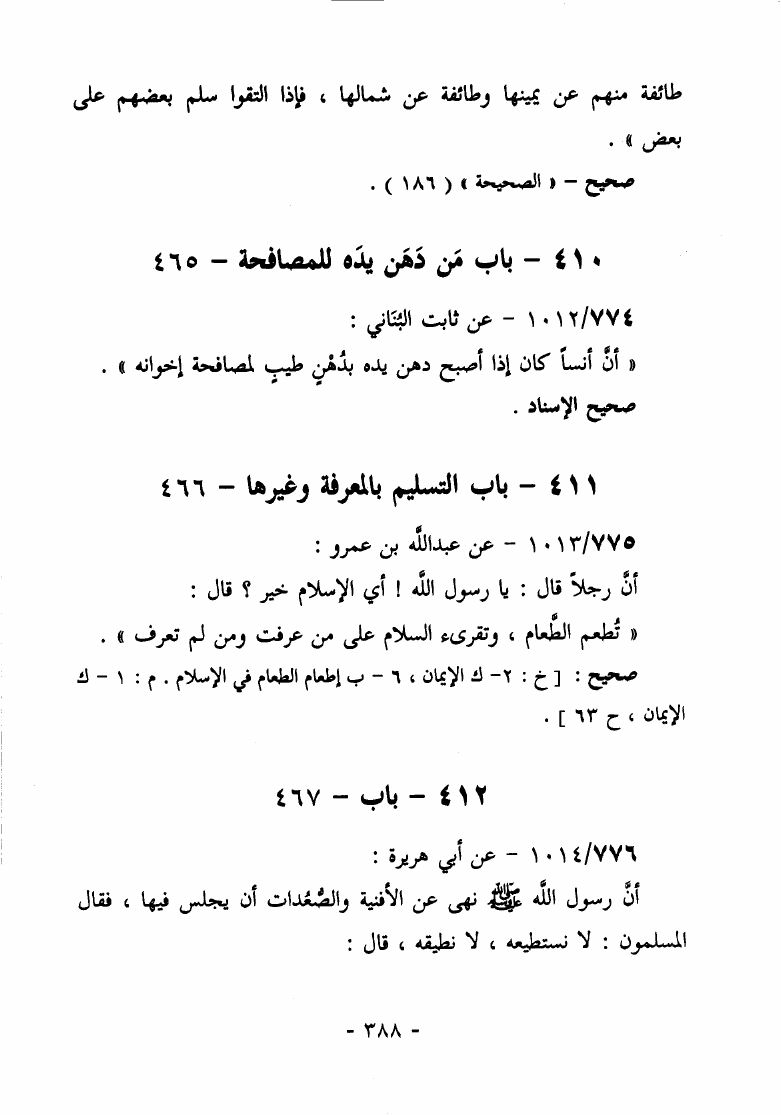 طائفة منهم عن يمينها وطائفة عن شمالها ، فإذا التقوا سلم بعضهم على
بعض » .
صحيح – « الصحيحة » ( ١٨٦ ) .
٤١٠ – باب مَن دَهَن يدَه للمصافحة – ٤٦٥
١٠١٢/٧٧٤ – عن ثابت البُنَاني :
« أنَّ أنساً كان إذا أصبح دهن يده بدُهْنٍ طيبٍ لمصافحة إخوانه » .
صحيح الإسناد .
٤١١ – باب التسليم بالمعرفة وغيرها – ٤٦٦
١٠١٣/٧٧٥ – عن عبدالله بن عمرو :
أنَّ رجلاً قال : يا رسول الله ! أي الإسلام خير ؟ قال :
« تُطعم الطَّعام ، وتقرىء السلام على من عرفت ومن لم تعرف » .
صحيح : [ خ : ٢– ك الإيمان ، ٦ – ب إطعام الطعام في الإسلام . م : ١ – ك
الإيمان ، ح ٦٣ ] .
٤١٢ – باب – ٤٦٧
١٠١٤/٧٧٦ – عن أبي هريرة :
أنَّ رسول الله ﷺ نهى عن الأفنية والصُّعُدات أن يجلس فيها ، فقال
المسلمون : لا نستطيعه ، لا نطيقه ، قال :
- ٣٨٨ -